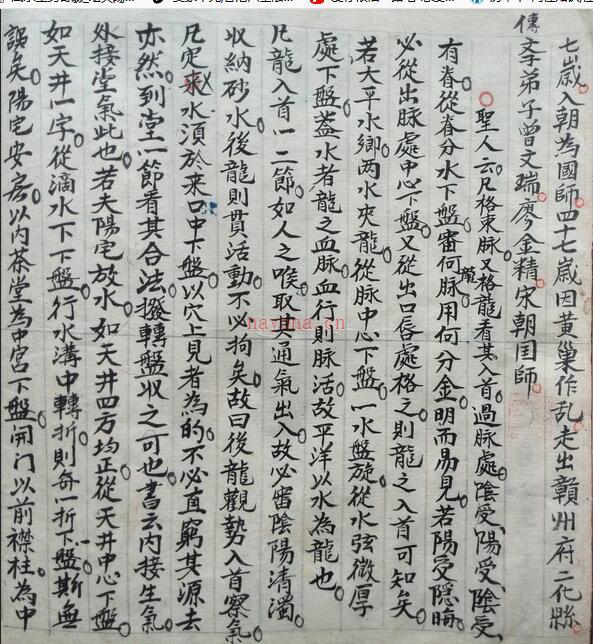 七歲入朝為國師四十七歲因黃巢作乱走出贛州府二化縣
傳季弟子曾文瑞廖金精宋朝囯師
聖人云凡格來脉又格龍看其入首過脉處陰受陽受陰受
有脊從脊分水下盤審何脉用何分金明而易見若陽受隱晦
龍
必從出脉處中心下盤又從出口唇處格之則龍之入首可知矣
若大平水鄉两水夾龍從脉中心下盤一水盤旋從水弦微厚
處下盤蓋水者龍之血脉血行則脉活故平洋以水為龍也
凡龍入首一二節如人之喉取其通氣出入故必審陰陽清濁
收納砂水後龍則貫活動不必拘矣故曰後龍觀勢入首察氣
凡定來水須於来口中下盤以穴上見者為的不必直窮其源去
亦然到堂一節看其合法撥轉盤收之可也書云内接生氣
外接堂氣此也若夫陽宅放水如天井四方均正從天井中心下盤
如天井一字從滴水下下盤行水溝中轉折則每一折下一盤斯無
誤矣陽宅安房以内茶堂為中宮下盤開门以前襟柱為中
hayuna.cn